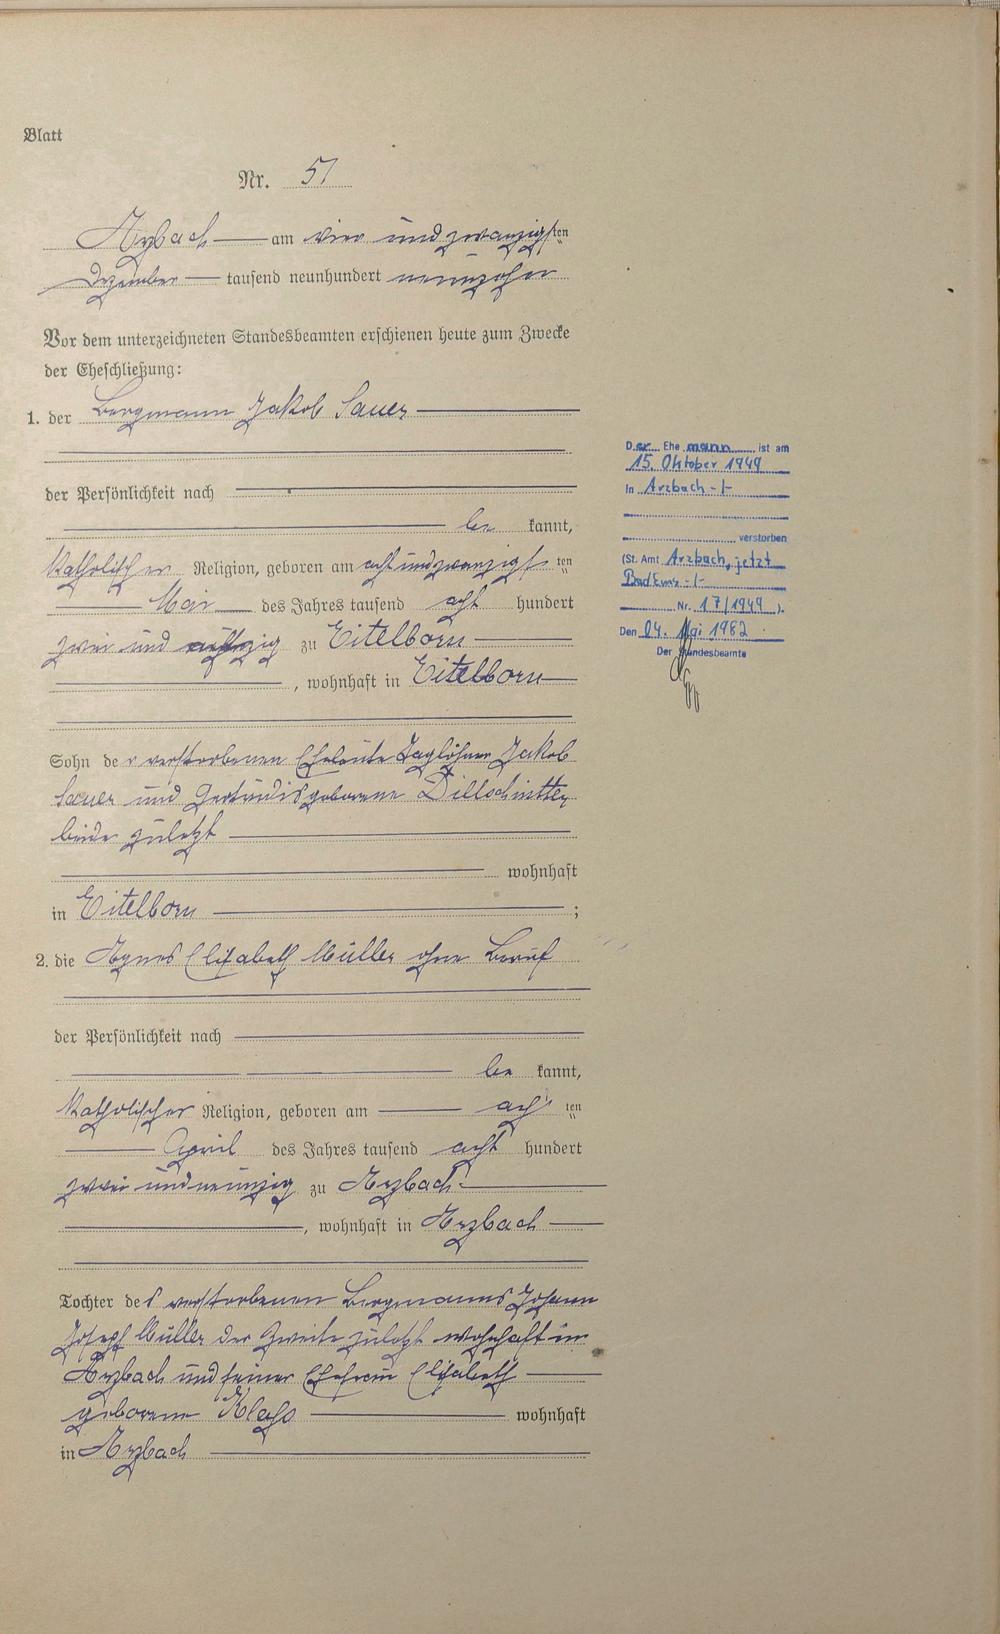 Blatt
Nr. 51
Arzbach am vier und zwanzigsten
Dezember tausend neunhundert neunzehn
Vor dem unterzeichneten Standesbeamten erschienen heute zum Zwecke
der Eheschließung:
1. der Bergmann Jakob Sauer
der Persönlichkeit nach
be kannt,
katholischer Religion, geboren am acht und zwanzigsten
Mai des Jahres tausend acht hundert
zwei und achtzig zu Eitelborn
, wohnhaft in Eitelborn
Sohn der verstorbenen Eheleute Taglöhner Jakob
Sauer und Gertrudis geborene
beide zuletzt
wohnhaft
in Eitelborn ;
2. die Agnes Elisabeth Müller ohne Beruf
der Persönlichkeit nach
be kannt,
katholischer Religion, geboren am achten
April des Jahres tausend acht hundert
zwei und neunzig zu Arzbach
, wohnhaft in Arzbach
Tochter des verstorbenen Bergmanns Johann
Joseph Müller der Zweite zuletzt wohnhaft in
Arzbach und seiner Ehefrau Elisabeth
geborene wohnhaft
in Arzbach
Der Ehe mann ist am
15. Oktober 1949
in Arzbach -/-
verstorben
(St. Amt Arzbach, jetzt
Bad Ems -/-
Nr. 17/1949 ).
Den 04. Mai 1982
Der Standesbeamte